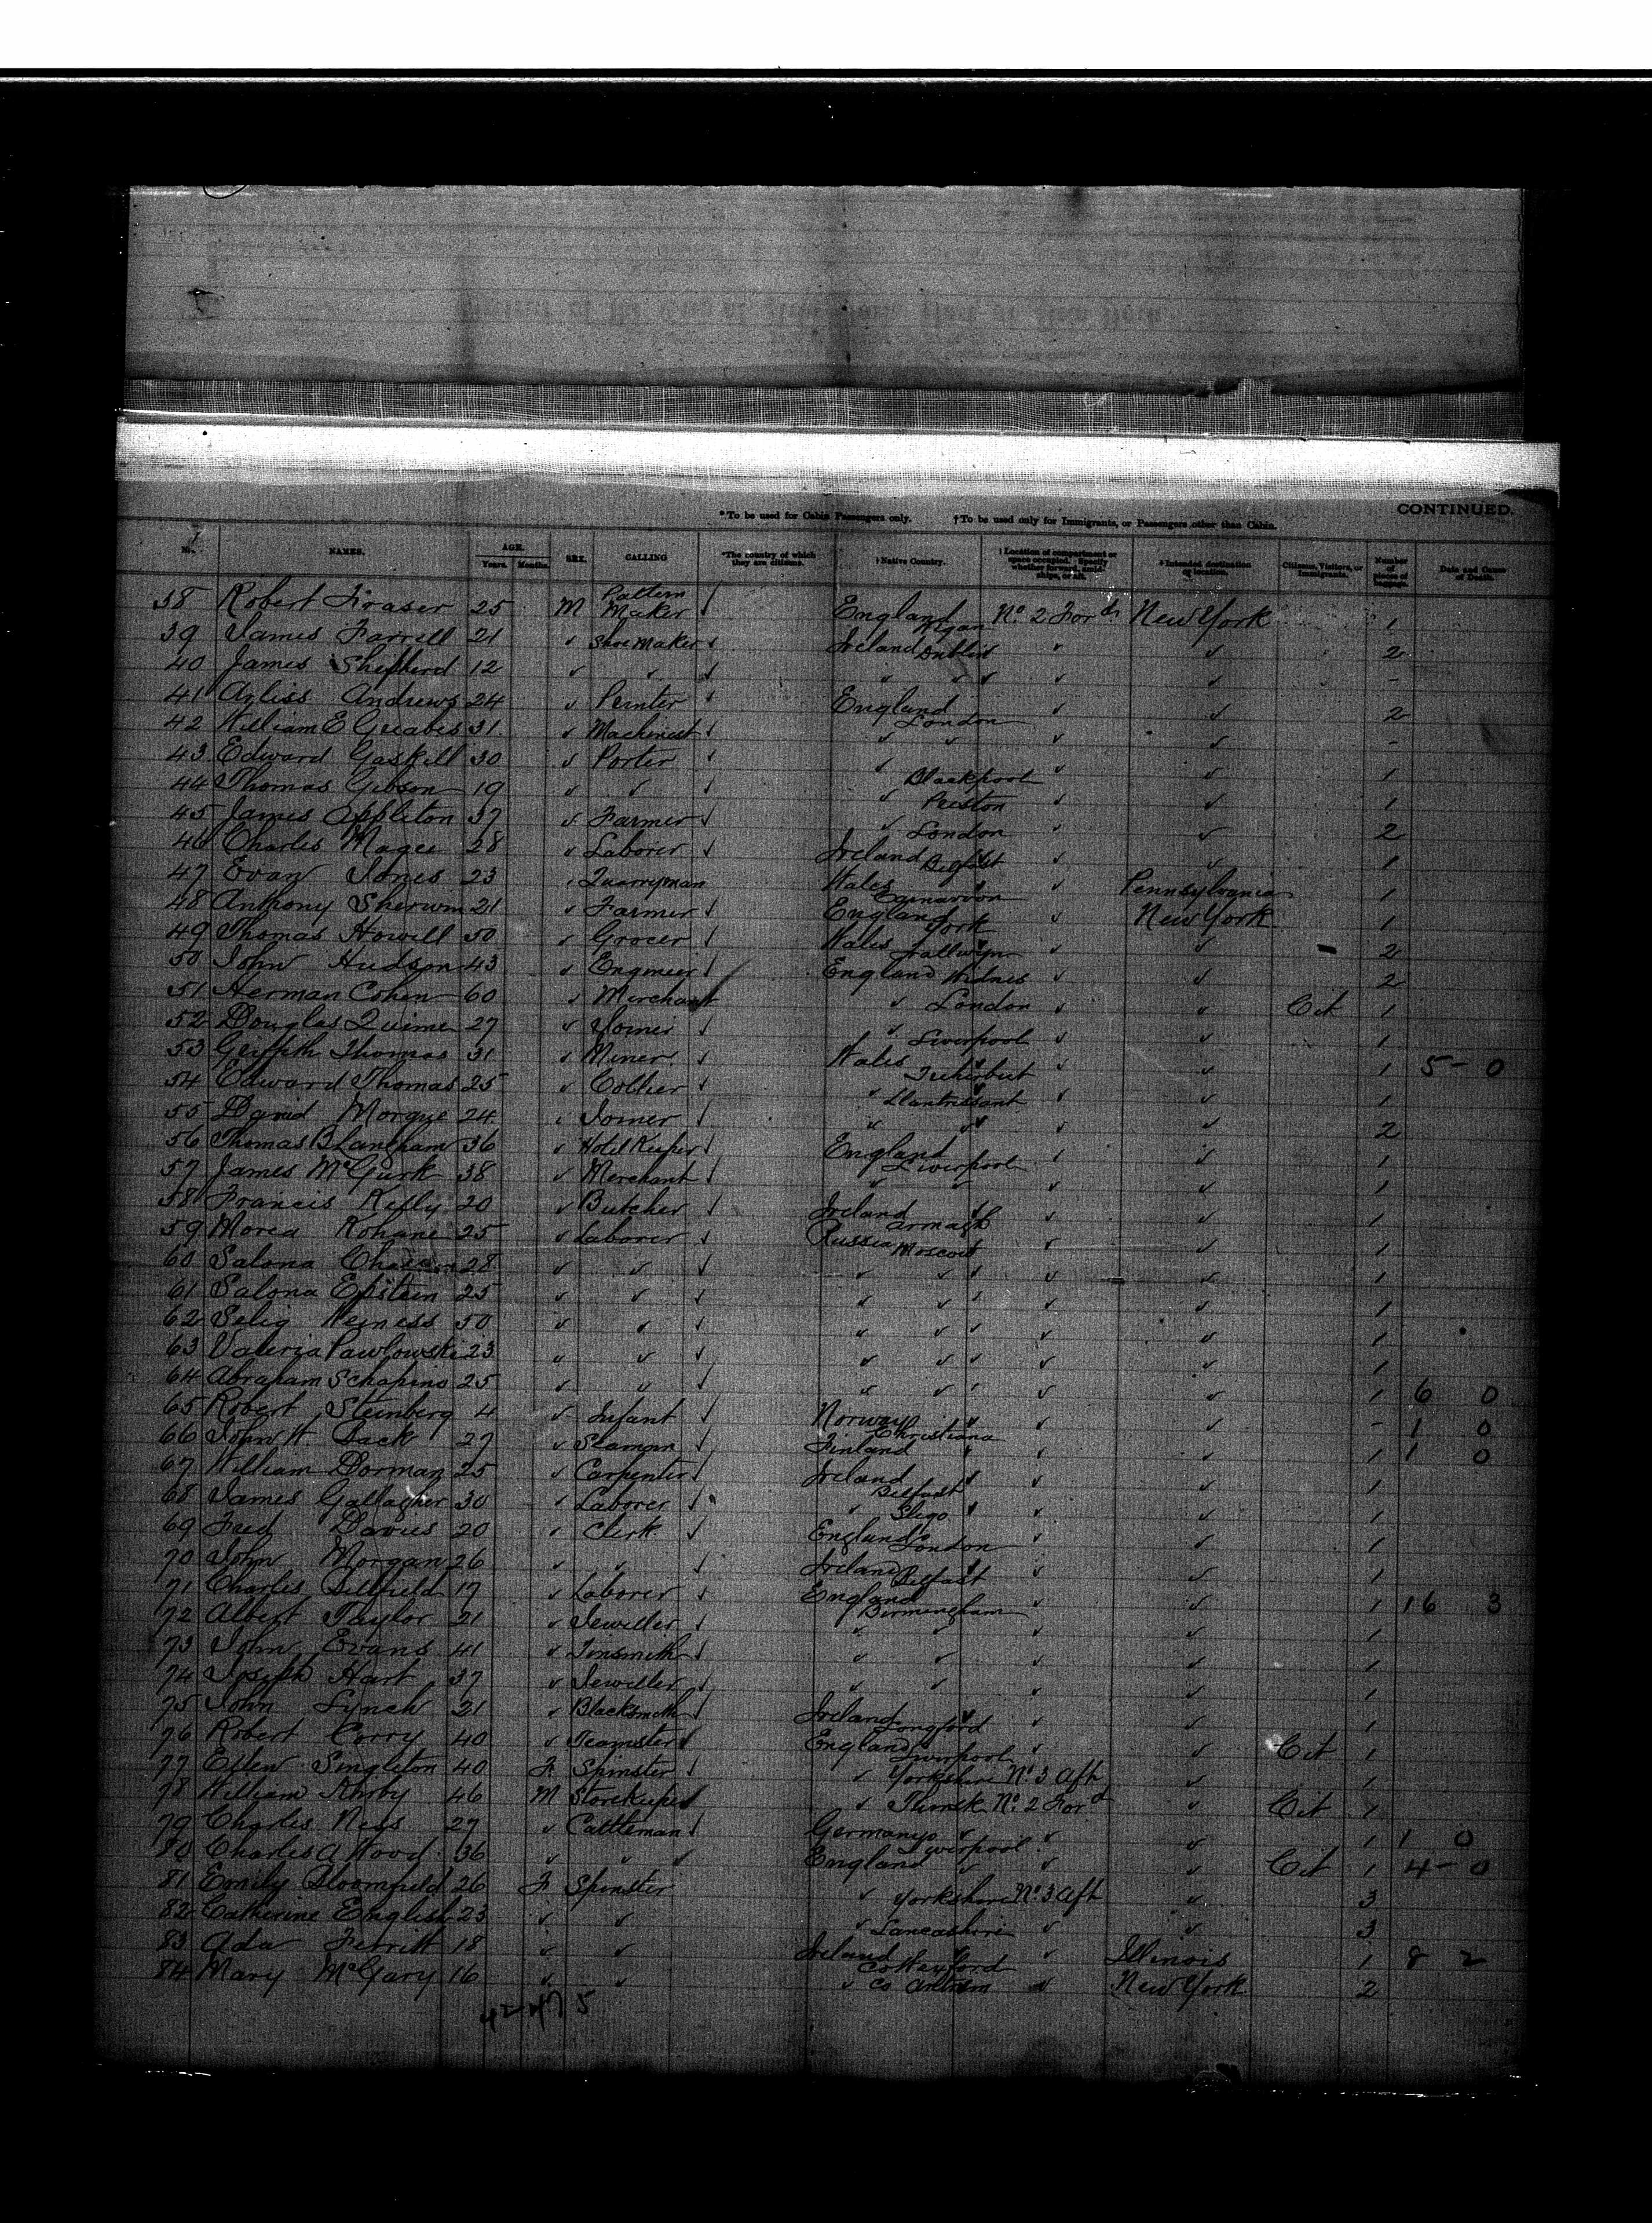 CONTINUED.
*To be used for Cabin Passengers only. †To be used only for Immigrants, or Passengers other than Cabin.
No. NAMES. AGE. Years. Months. SEX. CALLING *The country of which they are citizens. †Native Country. †Location of compartment or space occupied. Specify whether forward, amidships, or aft. Intended destination or location. Citizens, Visitors, or Immigrants. Number of pieces of baggage. Date and Cause of Death.
38 Robert Fraser 25 M Pattern Maker ✓ England Wigan No. 2 Ford New York 1
39 James Farrell 21 ✓ Shoe Maker ✓ Ireland Dublin ✓ ✓ 2
40 James Shepherd 12 ✓ ✓ ✓ ✓ ✓ ✓ ✓ -
41 Andrews 24 ✓ Printer ✓ England London ✓ ✓ 2
42 William E 31 ✓ Machinest ✓ ✓ ✓ ✓ ✓ -
43 Edward Gaskell 30 ✓ Porter ✓ ✓ Blackpool ✓ ✓ 1
44 Thomas Gibson 19 ✓ ✓ ✓ ✓ Preston ✓ ✓ 1
45 James Appleton 37 ✓ Farmer ✓ ✓ London ✓ ✓ 2
46 Charles Magee 28 ✓ Laborer ✓ Ireland Belfast ✓ ✓ 1
47 Evan Jones 23 ✓ Quarryman Wales Carnarvon ✓ Pennsylvania 1
48 Anthony Sherwin 21 ✓ Farmer ✓ England York ✓ New York 1
49 Thomas Howell 50 ✓ Grocer ✓ Wales ✓ ✓ 2
50 John Hudson 43 ✓ Engineer ✓ England Widnes ✓ ✓ 2
51 Herman Cohen 60 ✓ Merchant ✓ London ✓ ✓ Cit 1
52 Douglas 27 ✓ Joiner ✓ ✓ Liverpool ✓ ✓ 1
53 Griffith Thomas 31 ✓ Miner ✓ Wales ✓ ✓ 1 5-0
54 Edward Thomas 25 ✓ Collier ✓ ✓ Llantrissant ✓ ✓ 1
55 David 24 ✓ Joiner ✓ ✓ ✓ ✓ ✓ 2
56 Thomas B Langham 36 ✓ Hotel Keeper ✓ England Liverpool ✓ ✓ 1
57 James McGurk 38 ✓ Merchant ✓ ✓ ✓ ✓ ✓ 1
58 Francis 20 ✓ Butcher ✓ Ireland Armagh ✓ ✓ 1
59 Rohane 25 ✓ Laborer ✓ Russia Moscow ✓ ✓ 1
60 Salona 28 ✓ ✓ ✓ ✓ ✓ ✓ ✓ 1
61 Salona Epstein 25 ✓ ✓ ✓ ✓ ✓ ✓ ✓ 1
62 Selig 50 ✓ ✓ ✓ ✓ ✓ ✓ ✓ 1
63 Valeria Pawlowski 23 ✓ ✓ ✓ ✓ ✓ ✓ ✓ 1
64 Abraham Schapino 25 ✓ ✓ ✓ ✓ ✓ ✓ ✓ 1 6 0
65 Robert Steinberg 4 ✓ Infant ✓ Norway Christiana ✓ ✓ - 1 0
66 John H. 27 ✓ Seaman ✓ Finland ✓ ✓ 1 1 0
67 William Dorman 25 ✓ Carpenter ✓ Ireland Belfast ✓ ✓ 1
68 James Gallagher 30 ✓ Laborer ✓ ✓ Sligo ✓ ✓ 1
69 Fred Davies 20 ✓ Clerk ✓ England London ✓ ✓ 1
70 John Morgan 26 ✓ ✓ ✓ Ireland Belfast ✓ ✓ 1
71 Charles 17 ✓ Laborer ✓ England Birmingham ✓ ✓ 1 16 3
72 Albert Taylor 21 ✓ Jeweller ✓ ✓ ✓ ✓ ✓ 1
73 John Evans 41 ✓ Tinsmith ✓ ✓ ✓ ✓ ✓ 1
74 Joseph Hart 37 ✓ Jeweller ✓ ✓ ✓ ✓ ✓ 1
75 John Lynch 21 ✓ Blacksmith ✓ Ireland Longford ✓ ✓ 1
76 Robert Corry 40 ✓ Teamster ✓ England Liverpool ✓ ✓ Cit 1
77 Ellen Singleton 40 F Spinster ✓ ✓ Yorkshire No. 3 Aft ✓ 1
78 William Kirby 46 M Storekeeper ✓ Thirsk No. 2 Ford ✓ Cit 1
79 Charles 27 ✓ Cattleman ✓ Germany ✓ ✓ ✓ 1 1 0
80 Charles A Wood 36 ✓ ✓ ✓ England Liverpool ✓ ✓ Cit 1 4-0
81 Emily Bloomfield 26 F Spinster ✓ Yorkshire No. 3 Aft ✓ 3
82 Catherine English 23 ✓ ✓ ✓ Lancashire ✓ ✓ 3
83 Ada Ferritt 18 ✓ ✓ Ireland Co Wexford ✓ Illinois 1 8 2
84 Mary McGary 16 ✓ ✓ ✓ Co Antrim ✓ New York 2